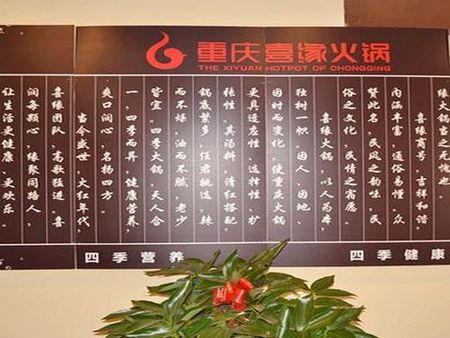 重庆喜缘火锅
THE XIYUAN HOTPOT OF CHONGQING
缘火锅当之无愧也。
喜缘商号，吉祥和谐，
内涵丰富，通俗易懂，众
赞此名，民风之韵味，民
俗之文化，民情之寓愿。
喜缘火锅，以人为本，
独树一帜，因人、因地、
因时而变化，使重庆火锅
更具适应性、选择性、扩
展性。其汤料，清红搭配，
锅底繁多，任君挑选，辣
而不燥，油而不腻，老少
皆宜。四季火锅，天人合
一，四季而养，健康营养，
爽口润心，名扬四方。
当今盛世，大红年代，
喜缘团队，高歌猛进。喜
间每颗心，缘聚同路人，
让生活更健康、更欢乐。
四季营养
四季健康